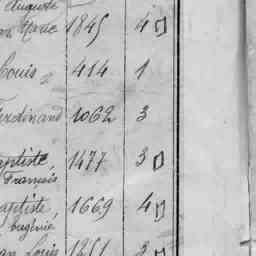 Auguste
Marie 1845 4
Louis 414 1
Ferdinand 1062 3
aptiste, 1477 3
François
aptiste, 1669 4
Eugénie
Louis 1251 3